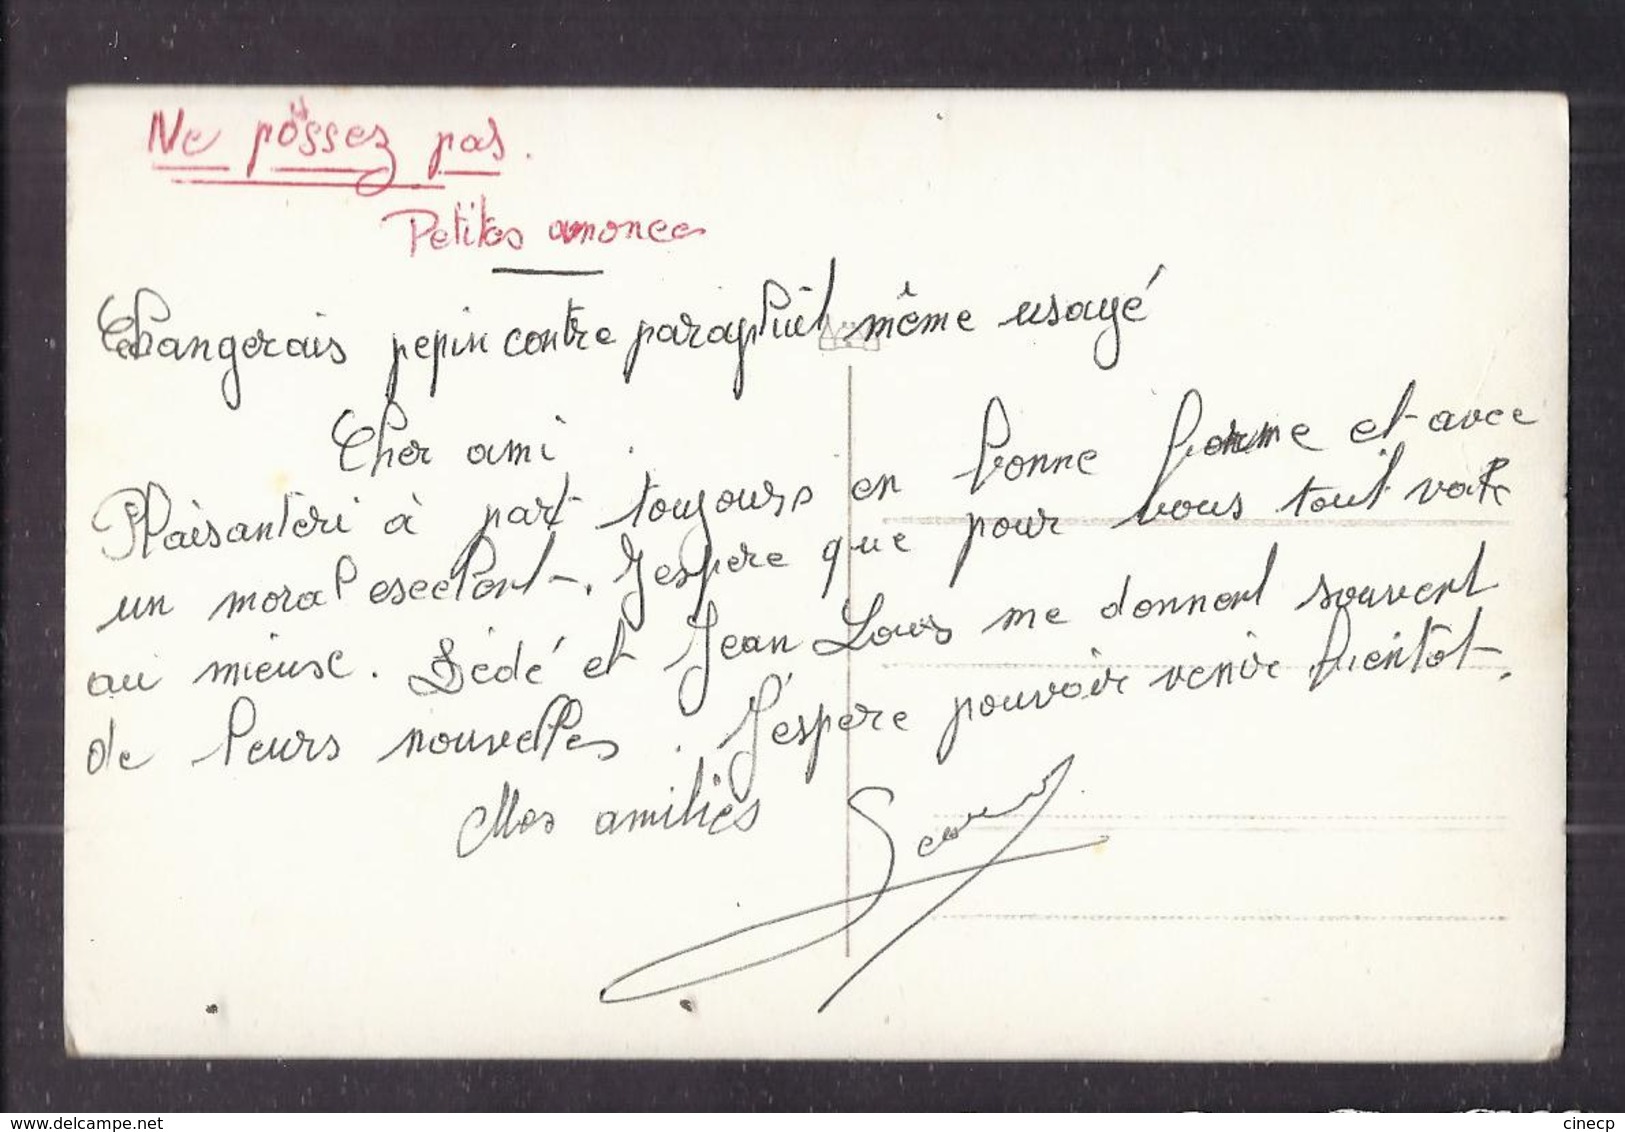 Ne poussez pas.
Petites anonces
Changerais pepin contre parapluil même usagé
Cher ami.
Plaisanteri à part toujours en bonne forme et avec
un moral exelant. J'espere que pour vous tout vat
au mieux. Dédé et Jean Louis me donnent souvent
de leurs nouvelles. J'espère pouvoir venir bientôt.
Mes amitiés
delcampe.net
cinecp